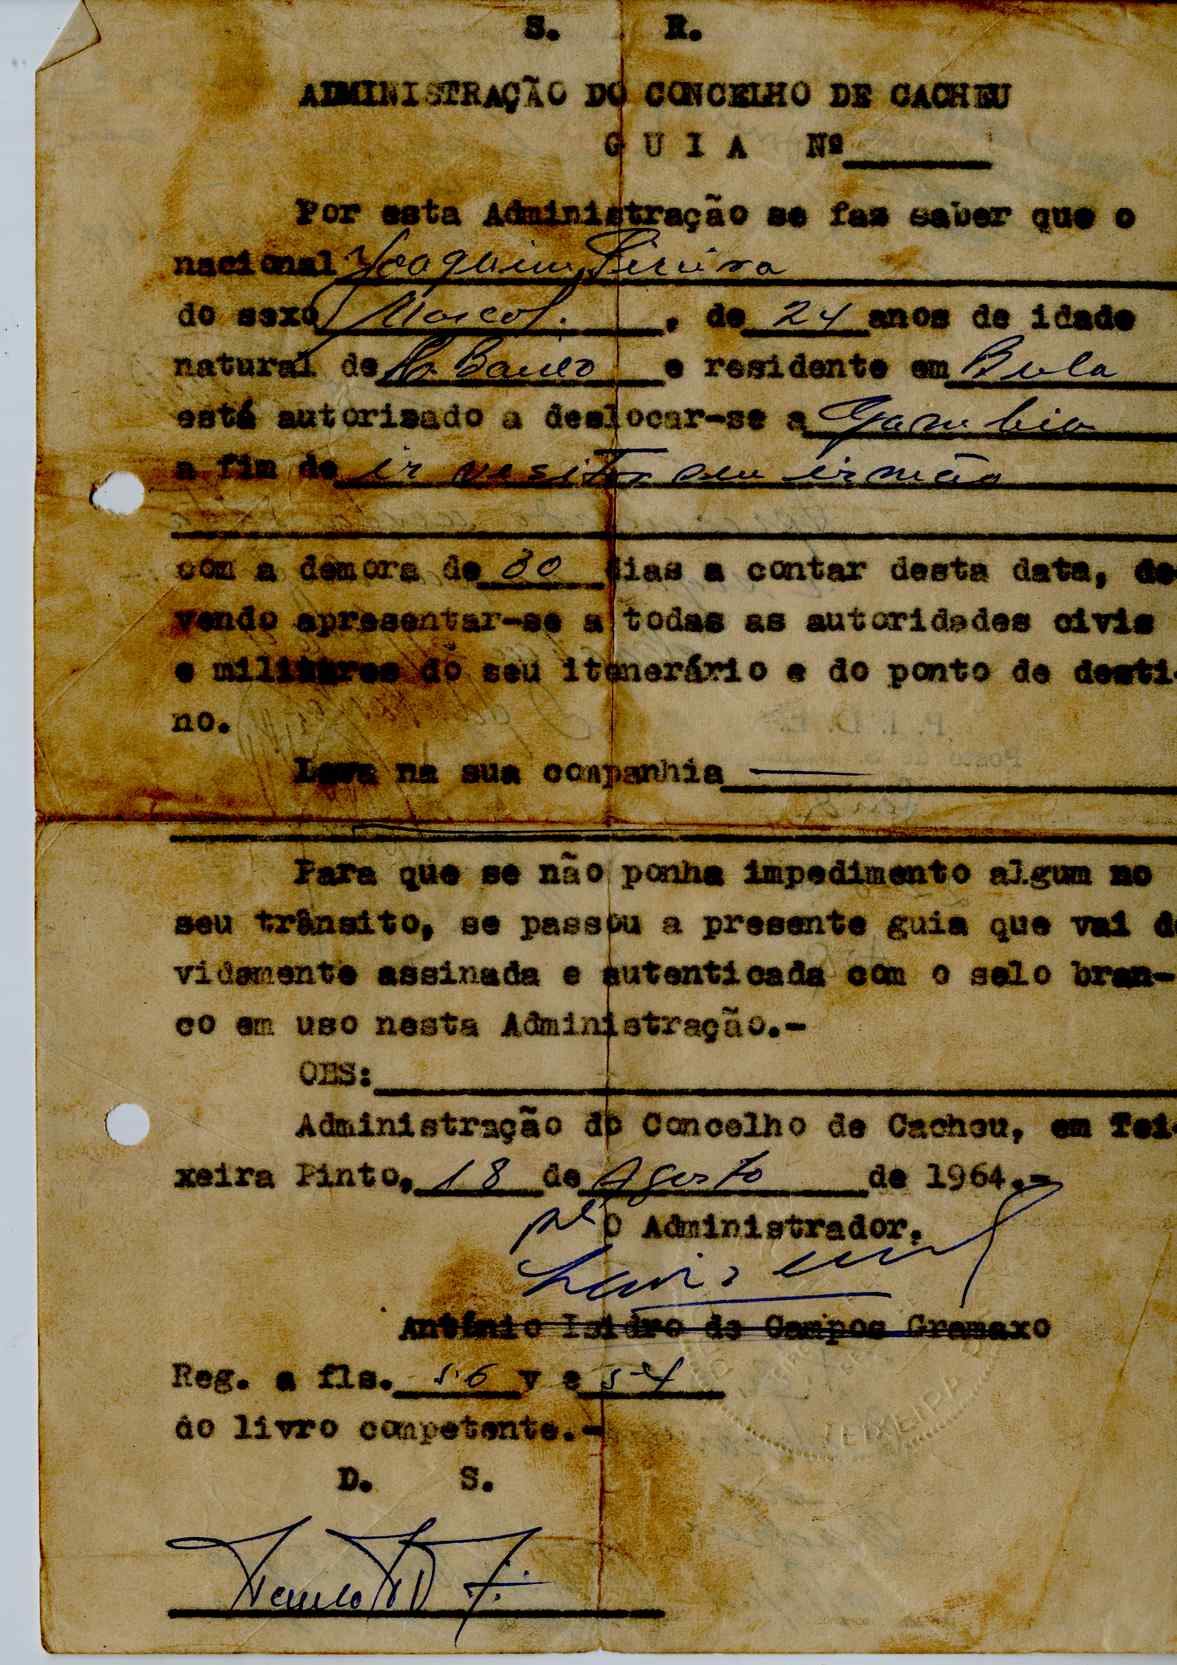 S. R.
ADMINISTRAÇÃO DO CONCELHO DE CACHEU
GUIA Nº
Por esta Administração se faz saber que o
nacional Joaquim Pereira
do sexo Mascol. , de 24 anos de idade
natural de e residente em Bula
está autorizado a deslocar-se a Gambia
a fim de ir vesitar seu irmão
com a demora de 30 dias a contar desta data, de
vendo apresentar-se a todas as autoridades civis
e militares do seu itenerário e do ponto de desti-
no.
Leva na sua companhia —
Para que se não ponha impedimento algum no
seu trânsito, se passou a presente guia que vai de
vidamente assinada e autenticada com o selo bran-
co em uso nesta Administração.-
OBS:
Administração do Concelho de Cacheu, em Tei-
xeira Pinto, 18 de Agosto de 1964.-
O Administrador,
António Isidro de Campos Gramaxo
Reg. a fls. 56 v e 54
do livro competente.-
D. S.
TEIXEIRA
P. I. D. E.